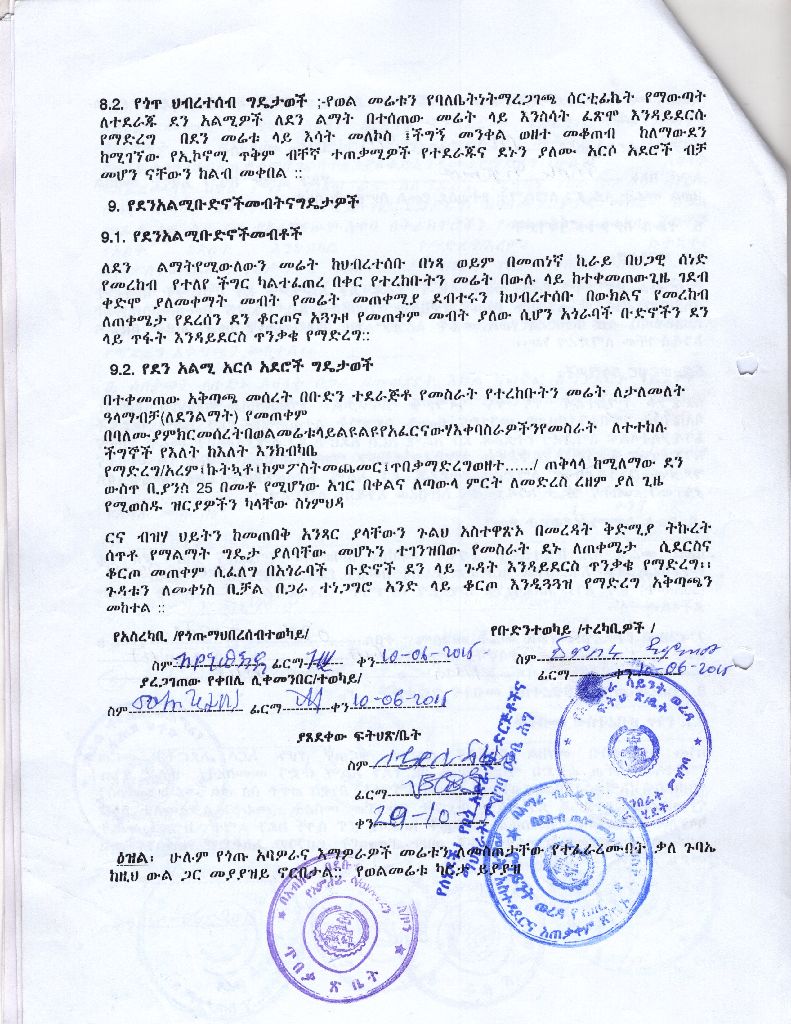 8.2. የጎጥ ህብረተሰብ ግዴታወች ;-የወል መሬቱን የባለቤትነትማረጋገጫ ሰርቲፊኬት የማውጣት
ለተደራጁ ደን አልሚዎች ለደን ልማት በተሰጠው መሬት ላይ እንስሳት ፈጽሞ እንዳይደርሱ
የማድረግ በደን መሬቱ ላይ እሳት መለኮስ ፤ችግኝ መንቀል ወዘተ መቆጠብ ከለማውደን
ከሚገኘው የኢኮኖሚ ጥቅም ብቸኛ ተጠቃሚዎች የተደራጁና ደኑን ያለሙ አርሶ አደሮች ብቻ
መሆን ናቸውን ከልብ መቀበል ::
9. የደንአልሚቡድኖችመብትናግዴታዎች
9.1. የደንአልሚቡድኖችመብቶች
ለደን ልማትየሚውለውን መሬት ከህብረተሰቡ በነጻ ወይም በመጠነኛ ኪራይ በህጋዊ ሰነድ
የመረከብ የተለየ ችግር ካልተፈጠረ በቀር የተረከቡትን መሬት በውሉ ላይ ከተቀመጠውጊዜ ገደብ
ቀድሞ ያለመቀማት መብት የመሬት መጠቀሚያ ደብተሩን ከህብረተሰቡ በውክልና የመረከብ
ለጠቀሜታ የደረሰን ደን ቆርጦና አጓጉዞ የመጠቀም መብት ያለው ሲሆን አጎራባች ቡድኖችን ደን
ላይ ጥፋት እንዳይደርስ ጥንቃቄ የማድረግ::
9.2. የደን አልሚ አርሶ አደሮች ግዴታወች
በተቀመጠው አቅጣጫ መሰረት በቡድን ተደራጅቶ የመስራት የተረከቡትን መሬት ለታለመለት
ዓላማብቻ(ለደንልማት) የመጠቀም
በባለሙያምክርመሰረትበወልመሬቱላይልዩልዩየአፈርናውሃእቀባስራዎችንየመስራት ለተተከሉ
ችግኞች የእለት ከእለት እንክብካቤ
የማድረግ/አረም፤ኩትኳቶ፤ኮምፖስትመጨመር፤ጥበቃማድረግወዘተ....../ ጠቅላላ ከሚለማው ደን
ውስጥ ቢያንስ 25 በመቶ የሚሆነው አገር በቀልና ለጣውላ ምርት ለመድረስ ረዘም ያለ ጊዜ
የሚወስዱ ዝርያዎችን ካላቸው ስነምህዳ
ርና ብዝሃ ህይትን ከመጠበቅ አንጻር ያላቸውን ጉልህ አስተዋጽኦ በመረዳት ቅድሚያ ትኩረት
ሰጥቶ የማልማት ግዴታ ያለባቸው መሆኑን ተገንዝበው የመስራት ደኑ ለጠቀሜታ ሲደርስና
ቆርጦ መጠቀም ሲፈለግ በአጎራባች ቡድኖች ደን ላይ ጉዳት እንዳይደርስ ጥንቃቄ የማድረግ፡፡
ጉዳቱን ለመቀነስ ቢቻል በጋራ ተነጋግሮ አንድ ላይ ቆርጦ እንዲጓጓዝ የማድረግ አቅጣጫን
መከተል ::
የአስረካቢ /የጎጡማህበረሰብተወካይ/ የቡድንተወካይ /ተረካቢዎች /
ስም ፊርማ ቀን 10-06-2015 ስም
ያረጋገጠው የቀበሌ ሊቀመንበር/ተወካይ/ ፊርማ ቀን 10-06-2015
ስም ፊርማ ቀን 10-06-2015
ያጸደቀው ፍትህጽ/ቤት
ስም
ፊርማ
ቀን 29-10-
ዕዝል፡ ሁሉም የጎጡ አባዎራና እማዎራዎች መሬቱን ለመስጠታቸው የተፈራረሙበት ቃለ ጉባኤ
ከዚህ ውል ጋር መያያዝይ ኖርበታል:: የወልመሬቱ ካርታ ይያያዝ
ጥበቃ ጽ ቤት